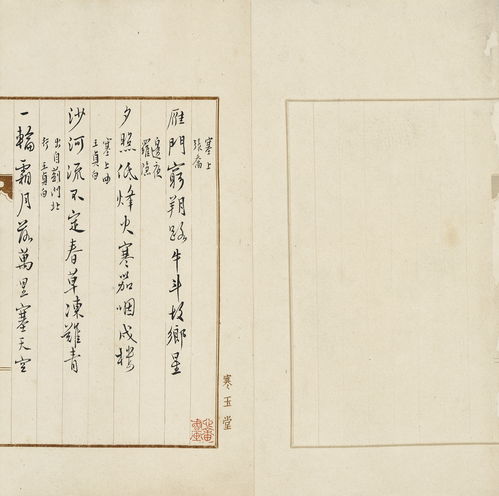 塞上
張喬
雁門窮朔路牛斗故鄉星
邊夜
羅隱
夕照低烽火寒笳咽戍樓
塞上曲
王貞白
沙河流不定春草凍難青
出自薊門北
行 王貞白
一輪霜月落萬里塞天空
寒玉堂